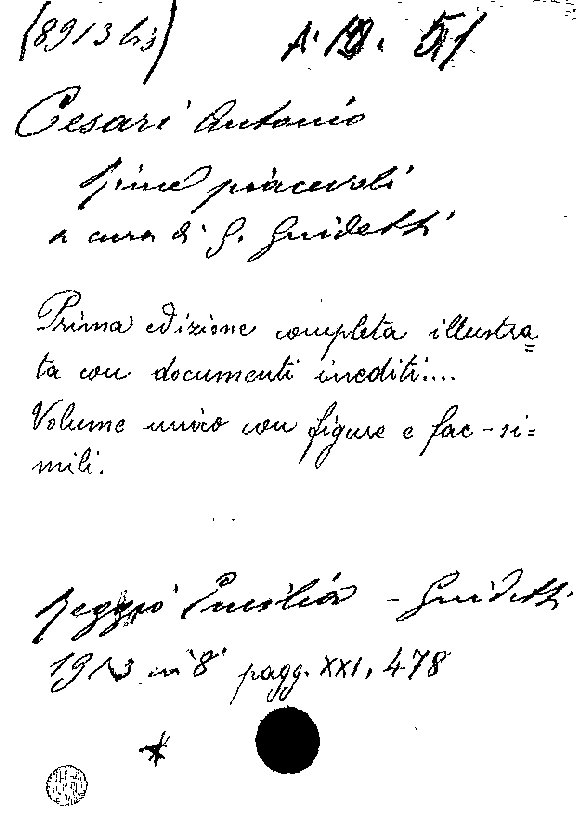 (8913 bis) A. 19. 51
Cesari Antonio
Rime piacevoli
a cura di G. Guidetti
Prima edizione completa illustra=
ta con documenti inediti....
Volume unico con figure e fac-si=
mili.
Reggio Emilia - Guidetti
1913 in 8° pagg. XXI, 478